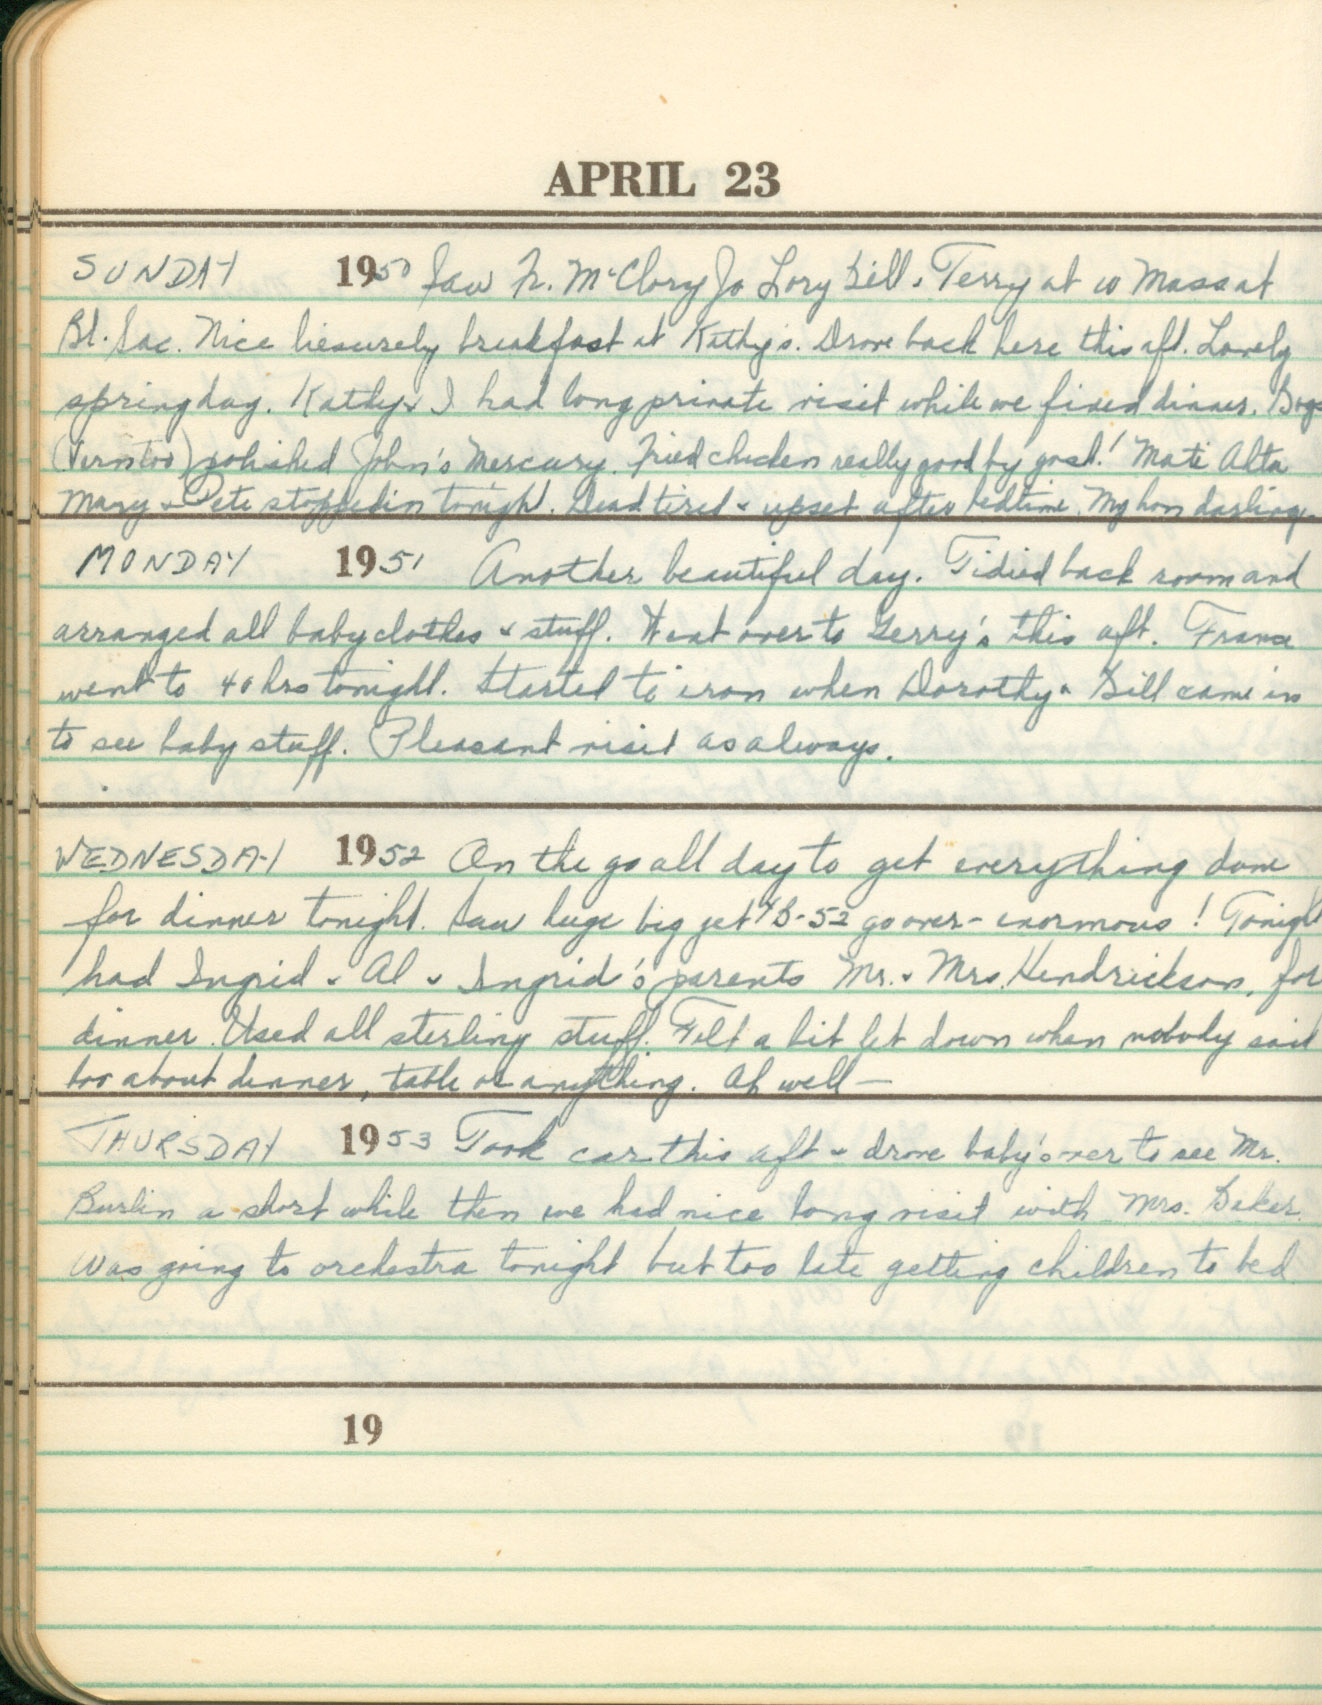 APRIL 23
SUNDAY 1950 Saw Fr. McClory Jo Lory Bill & Terry at 10 Mass at
Bl. Sac. Nice liesurely breakfast at Kathy's. Drove back here this aft. Lovely
spring day. Kathy & I had long private visit while we fixed dinner. Boys
polished John's Mercury. Fried chicken really good by gosh! Alta
Mary & Pete stopped in tonight. Dead tired & upset after bedtime. My hon darling.
MONDAY 1951 Another beautiful day. Tidied back room and
arranged all baby clothes & stuff. Went over to Gerry's this aft.
went to 40 hrs tonight. Started to iron when Dorothy & Bill came in
to see baby stuff. Pleasant visit as always.
WEDNESDAY 1952 On the go all day to get everything done
for dinner tonight. Saw huge big jet YB-52 go over - enormous! Tonight
had Ingrid & Al & Ingrid's parents Mr. & Mrs. Hendrickson, for
dinner. Used all sterling stuff. Felt a bit let down when nobody said
boo about dinner, table or anything. Ah well —
THURSDAY 1953 Took car this aft & drove baby's over to see Mr.
Burlin a short while then we had nice long visit with Mrs. Baker.
Was going to orchestra tonight but too late getting children to bed
19